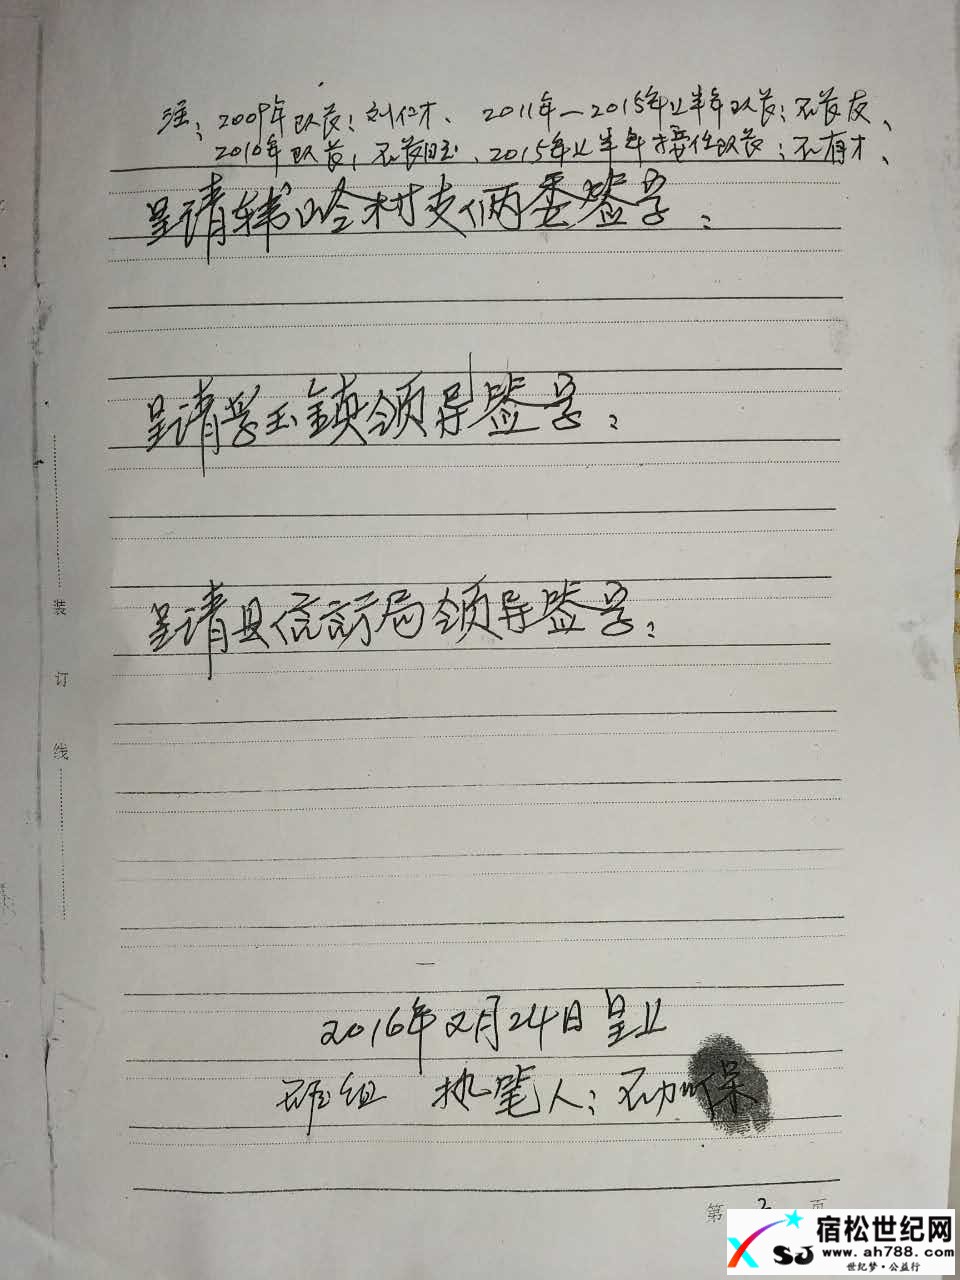 注：2009年队长：刘仁才、2011年—2015年上半年队长：石长友、
2010年队长：石长旺、2015年上半年接任队长：石有才、
呈请岭村支俩委签字：
呈请孚玉镇领导签字：
呈请县信访局领导签字：
装
订
线
2016年2月24日呈上
组 执笔人：石 保
第 2 页
XSJ
宿松世纪网
www.ah788.com
世纪梦·公益行